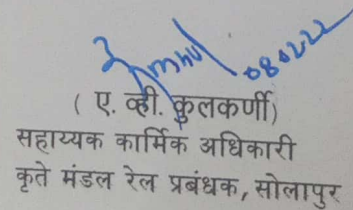 08.02.22
( ए. व्ही. कुलकर्णी)
सहाय्यक कार्मिक अधिकारी
कृते मंडल रेल प्रबंधक, सोलापुर